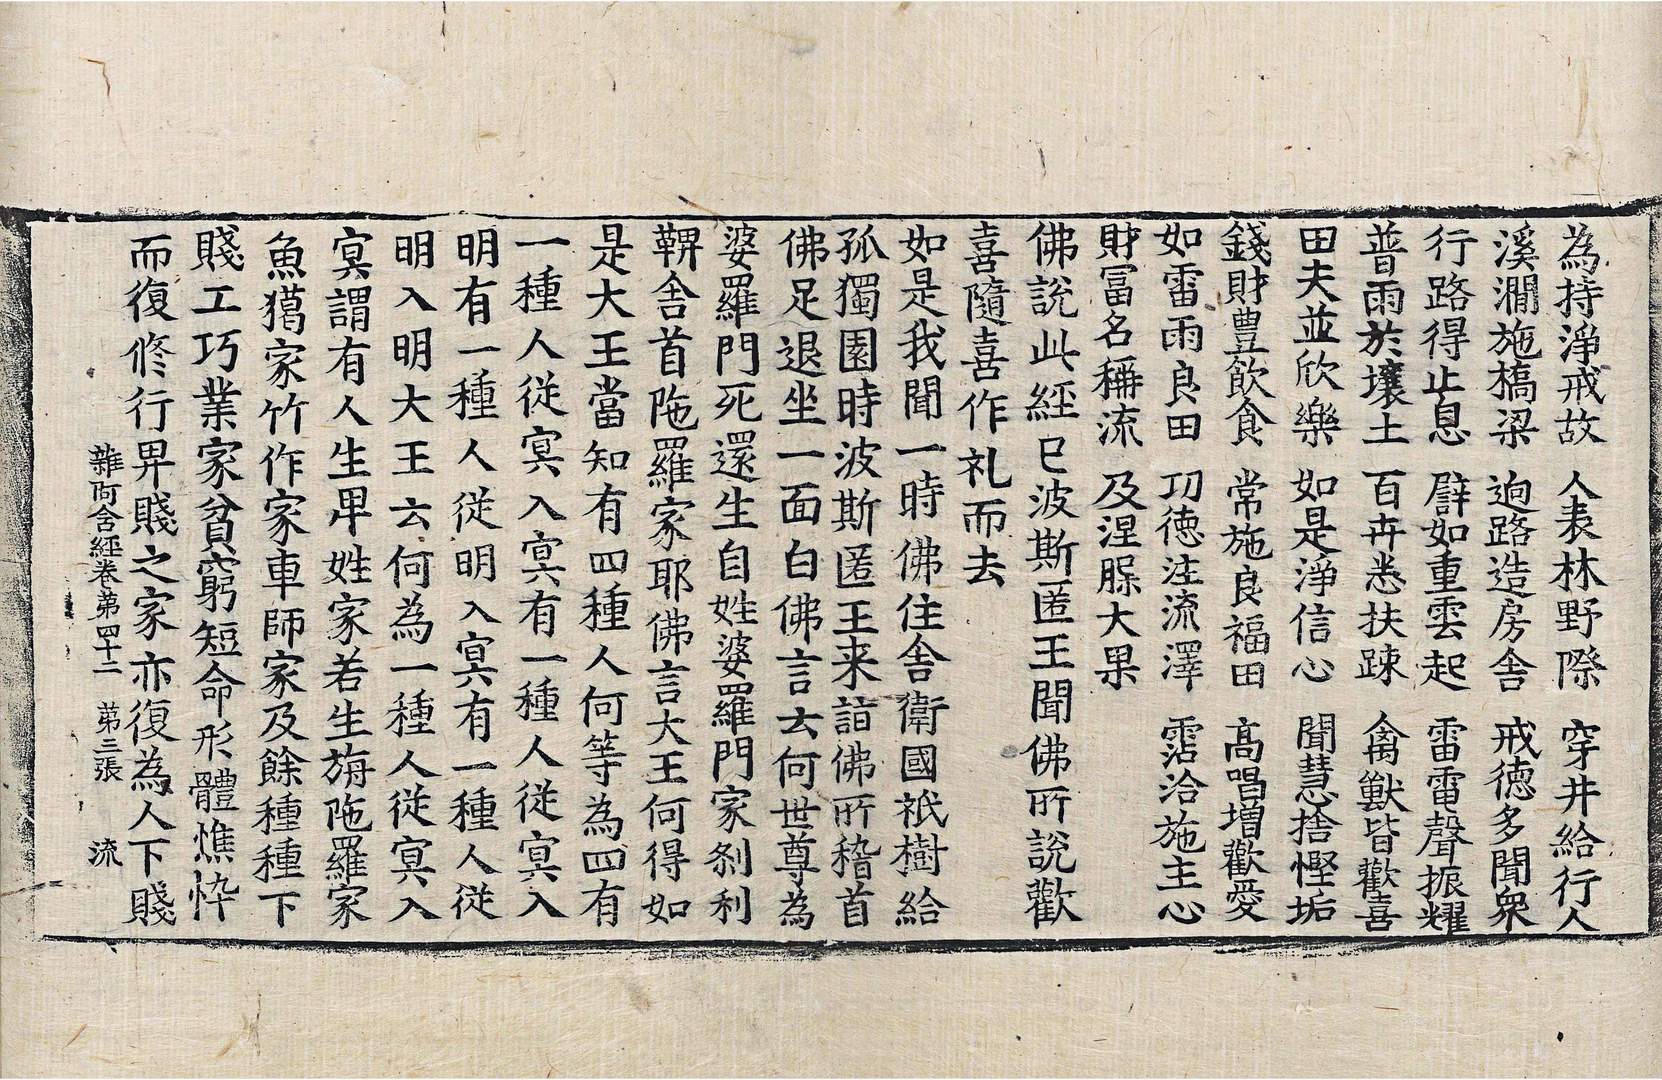 為持淨戒故　人表林野際　穿井給行人
溪澗施橋梁　逈路造房舍　戒德多聞衆
行路得止息　譬如重雲起　雷電聲振耀
普雨於壤土　百卉悉扶踈　禽獸皆歡喜
田夫並欣樂　如是淨信心　聞慧捨慳垢
錢財豊飲食　常施良福田　髙唱增歡愛
如雷雨良田　功徳注流澤　霑洽施主心
財冨名稱流　及涅脲大果
佛說此經已波斯匿王聞佛所說歡
喜隨喜作礼而去
如是我聞一時佛住舍衛國祇樹給
孤獨園時波斯匿王来詣佛所稽首
佛足退坐一面白佛言云何世尊為
婆羅門死還生自姓婆羅門家刹利
鞞舍首陁羅家耶佛言大王何得如
是大王當知有四種人何等為四有
一種人従冥入冥有一種人従冥入
明有一種人従明入冥有一種人従
明入明大王云何為一種人従冥入
冥謂有人生卑姓家若生旃陁羅家
魚獦家竹作家車師家及餘種種下
賤工巧業家貧窮短命形體憔悴
而復修行卑賤之家亦復為人下賤
雜阿含經卷第四十二　第三張　流